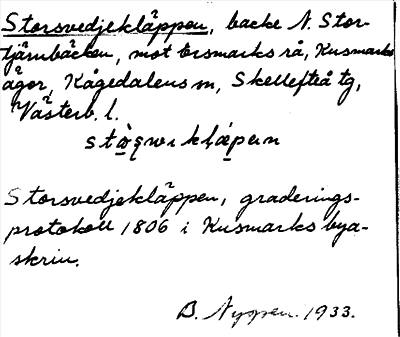 Storsvedjekläppen, backe N. Stor-
tjärnbäcken, mot Ersmarks rå, Kusmarks
ägor, Kågedalens sn, Skellefteå tg,
Västerb. l.
Storsvedjekläppen, graderings-
protokoll 1806 i Kusmarks bya-
skrin.
B. Nyppen. 1933.